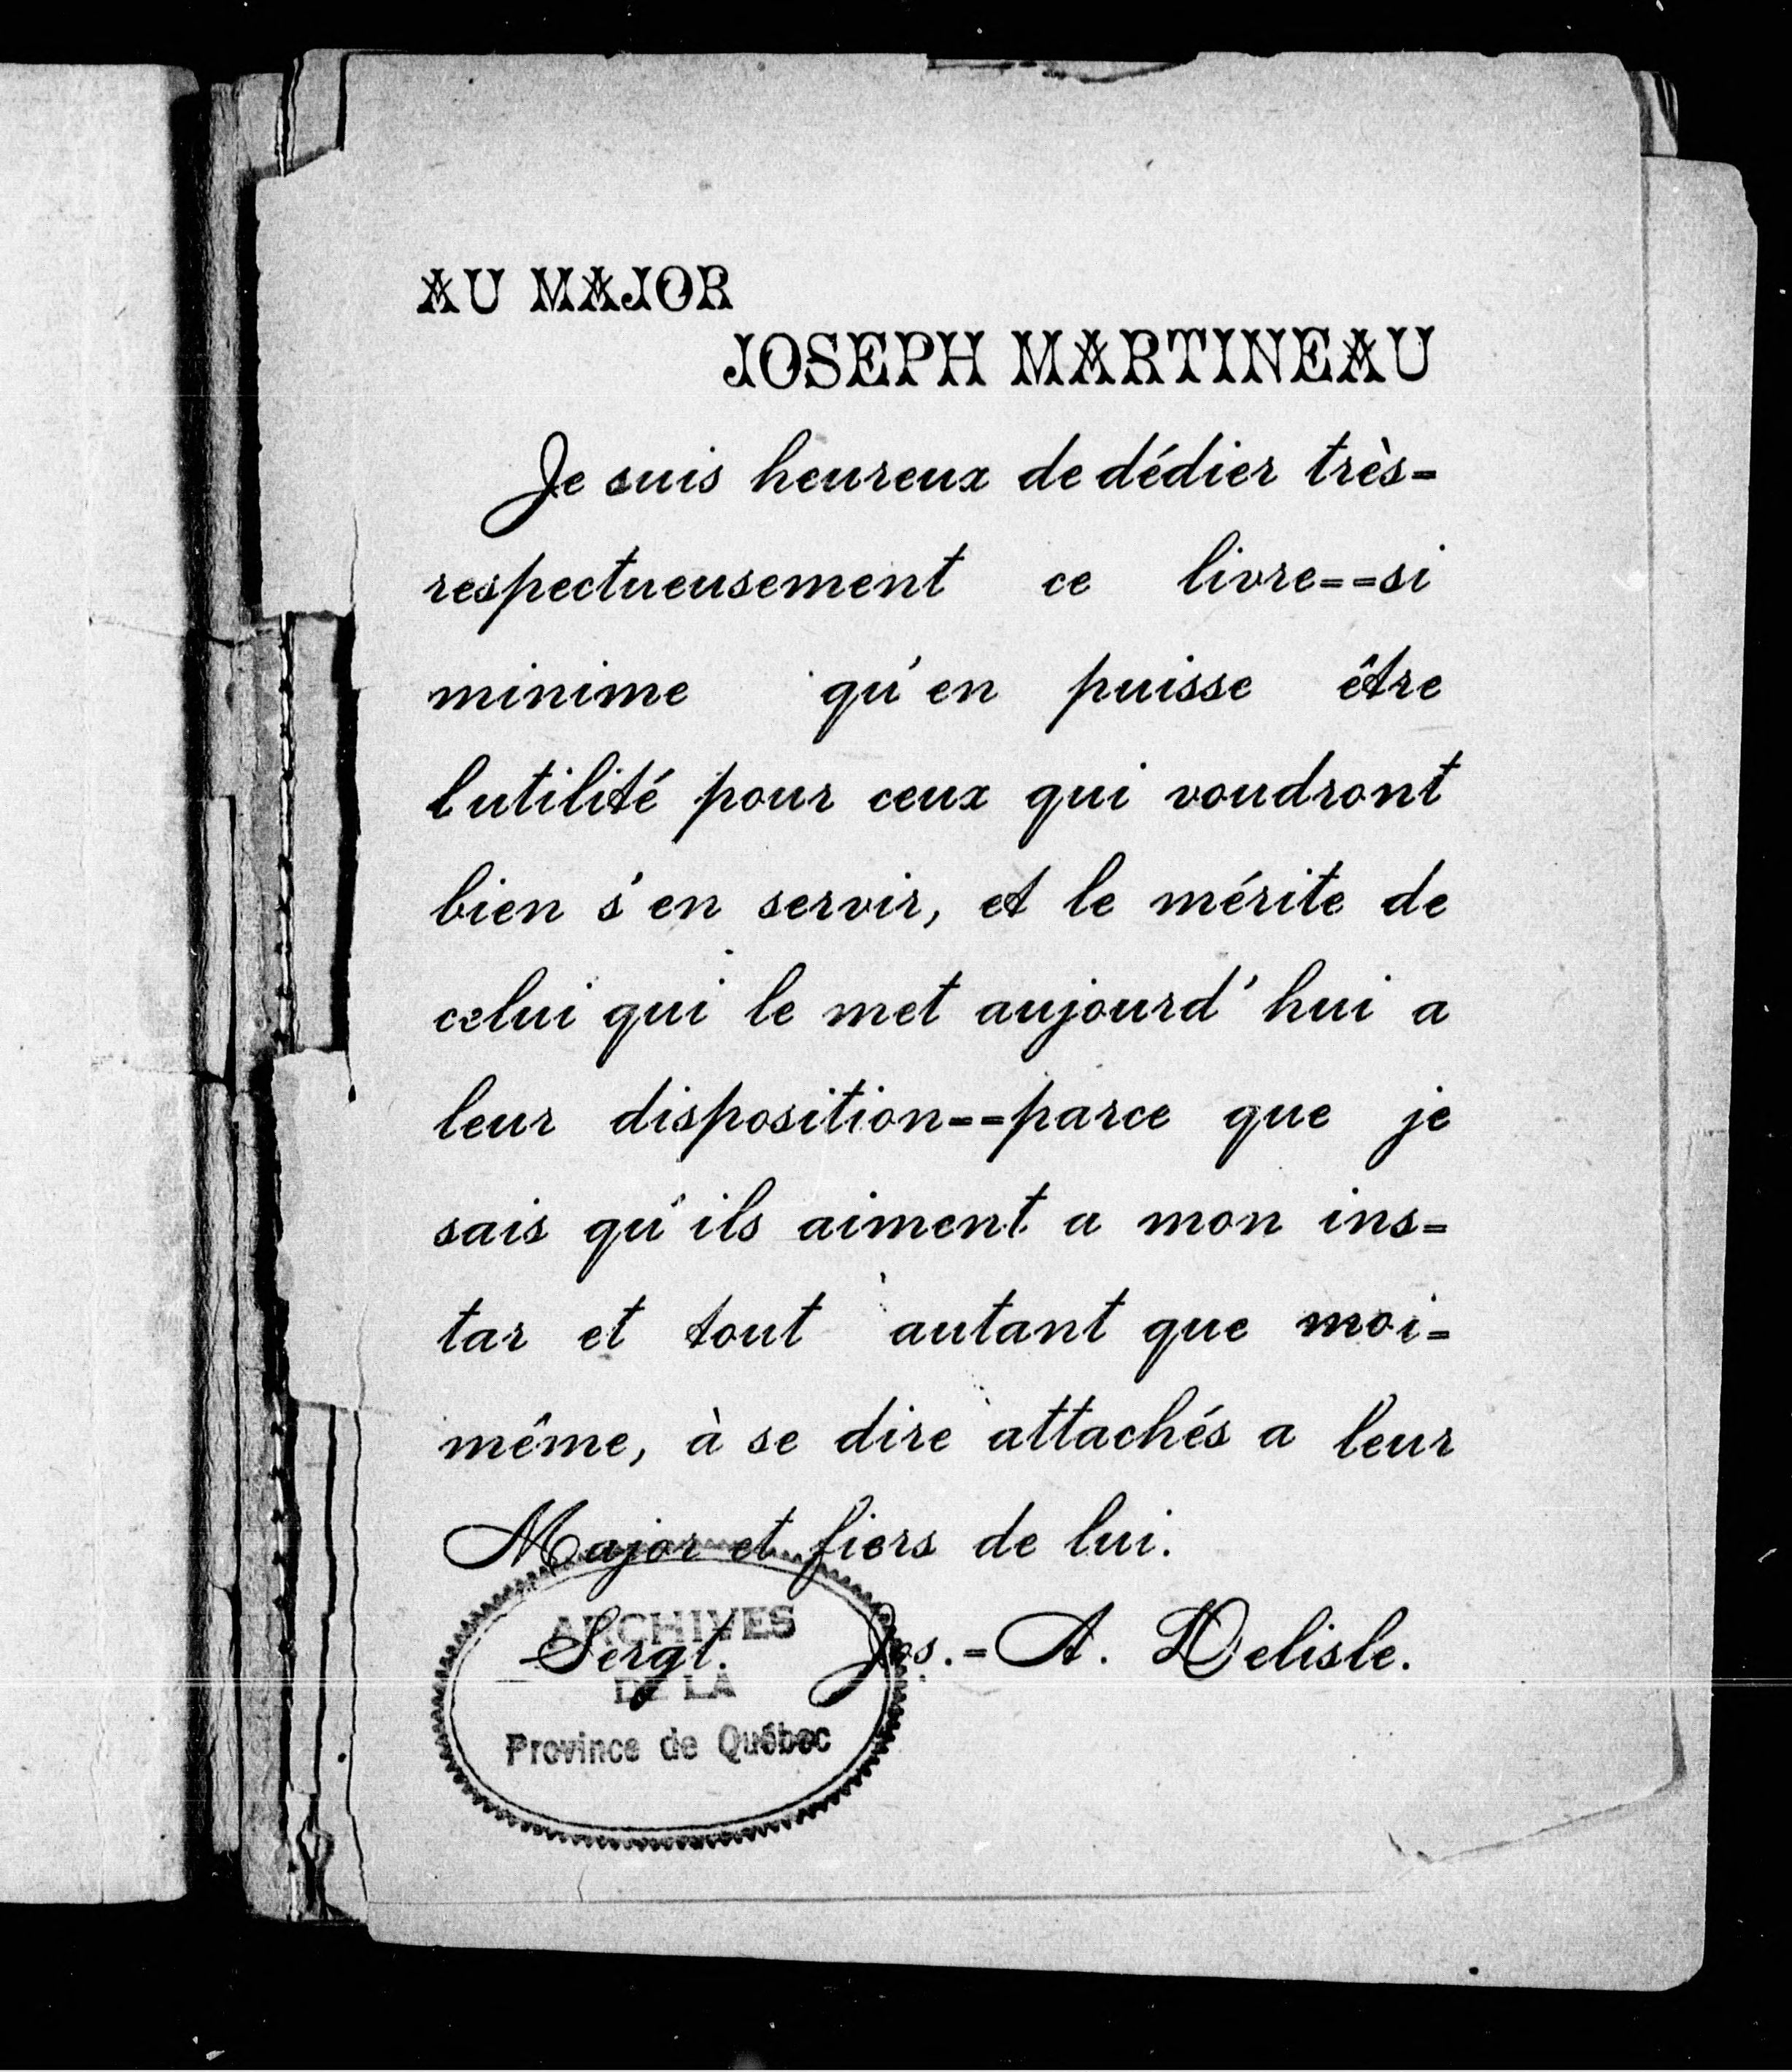 AU MAJOR
JOSEPH MARTINEAU
Je suis heureux de dédier très=
respectueusement ce livre==si
minime qu'en puisse être
l'utilité pour ceux qui voudront
bien s'en servir, et le mérite de
celui qui le met aujourd'hui a
leur disposition==parce que je
sais qu'ils aiment a mon ins=
tar et tout autant que moi=
même, à se dire attachés a leur
Major et fiers de lui.
Sergt. Jos.=A. Delisle.
ARCHIVES
DE LA
Province de Québec